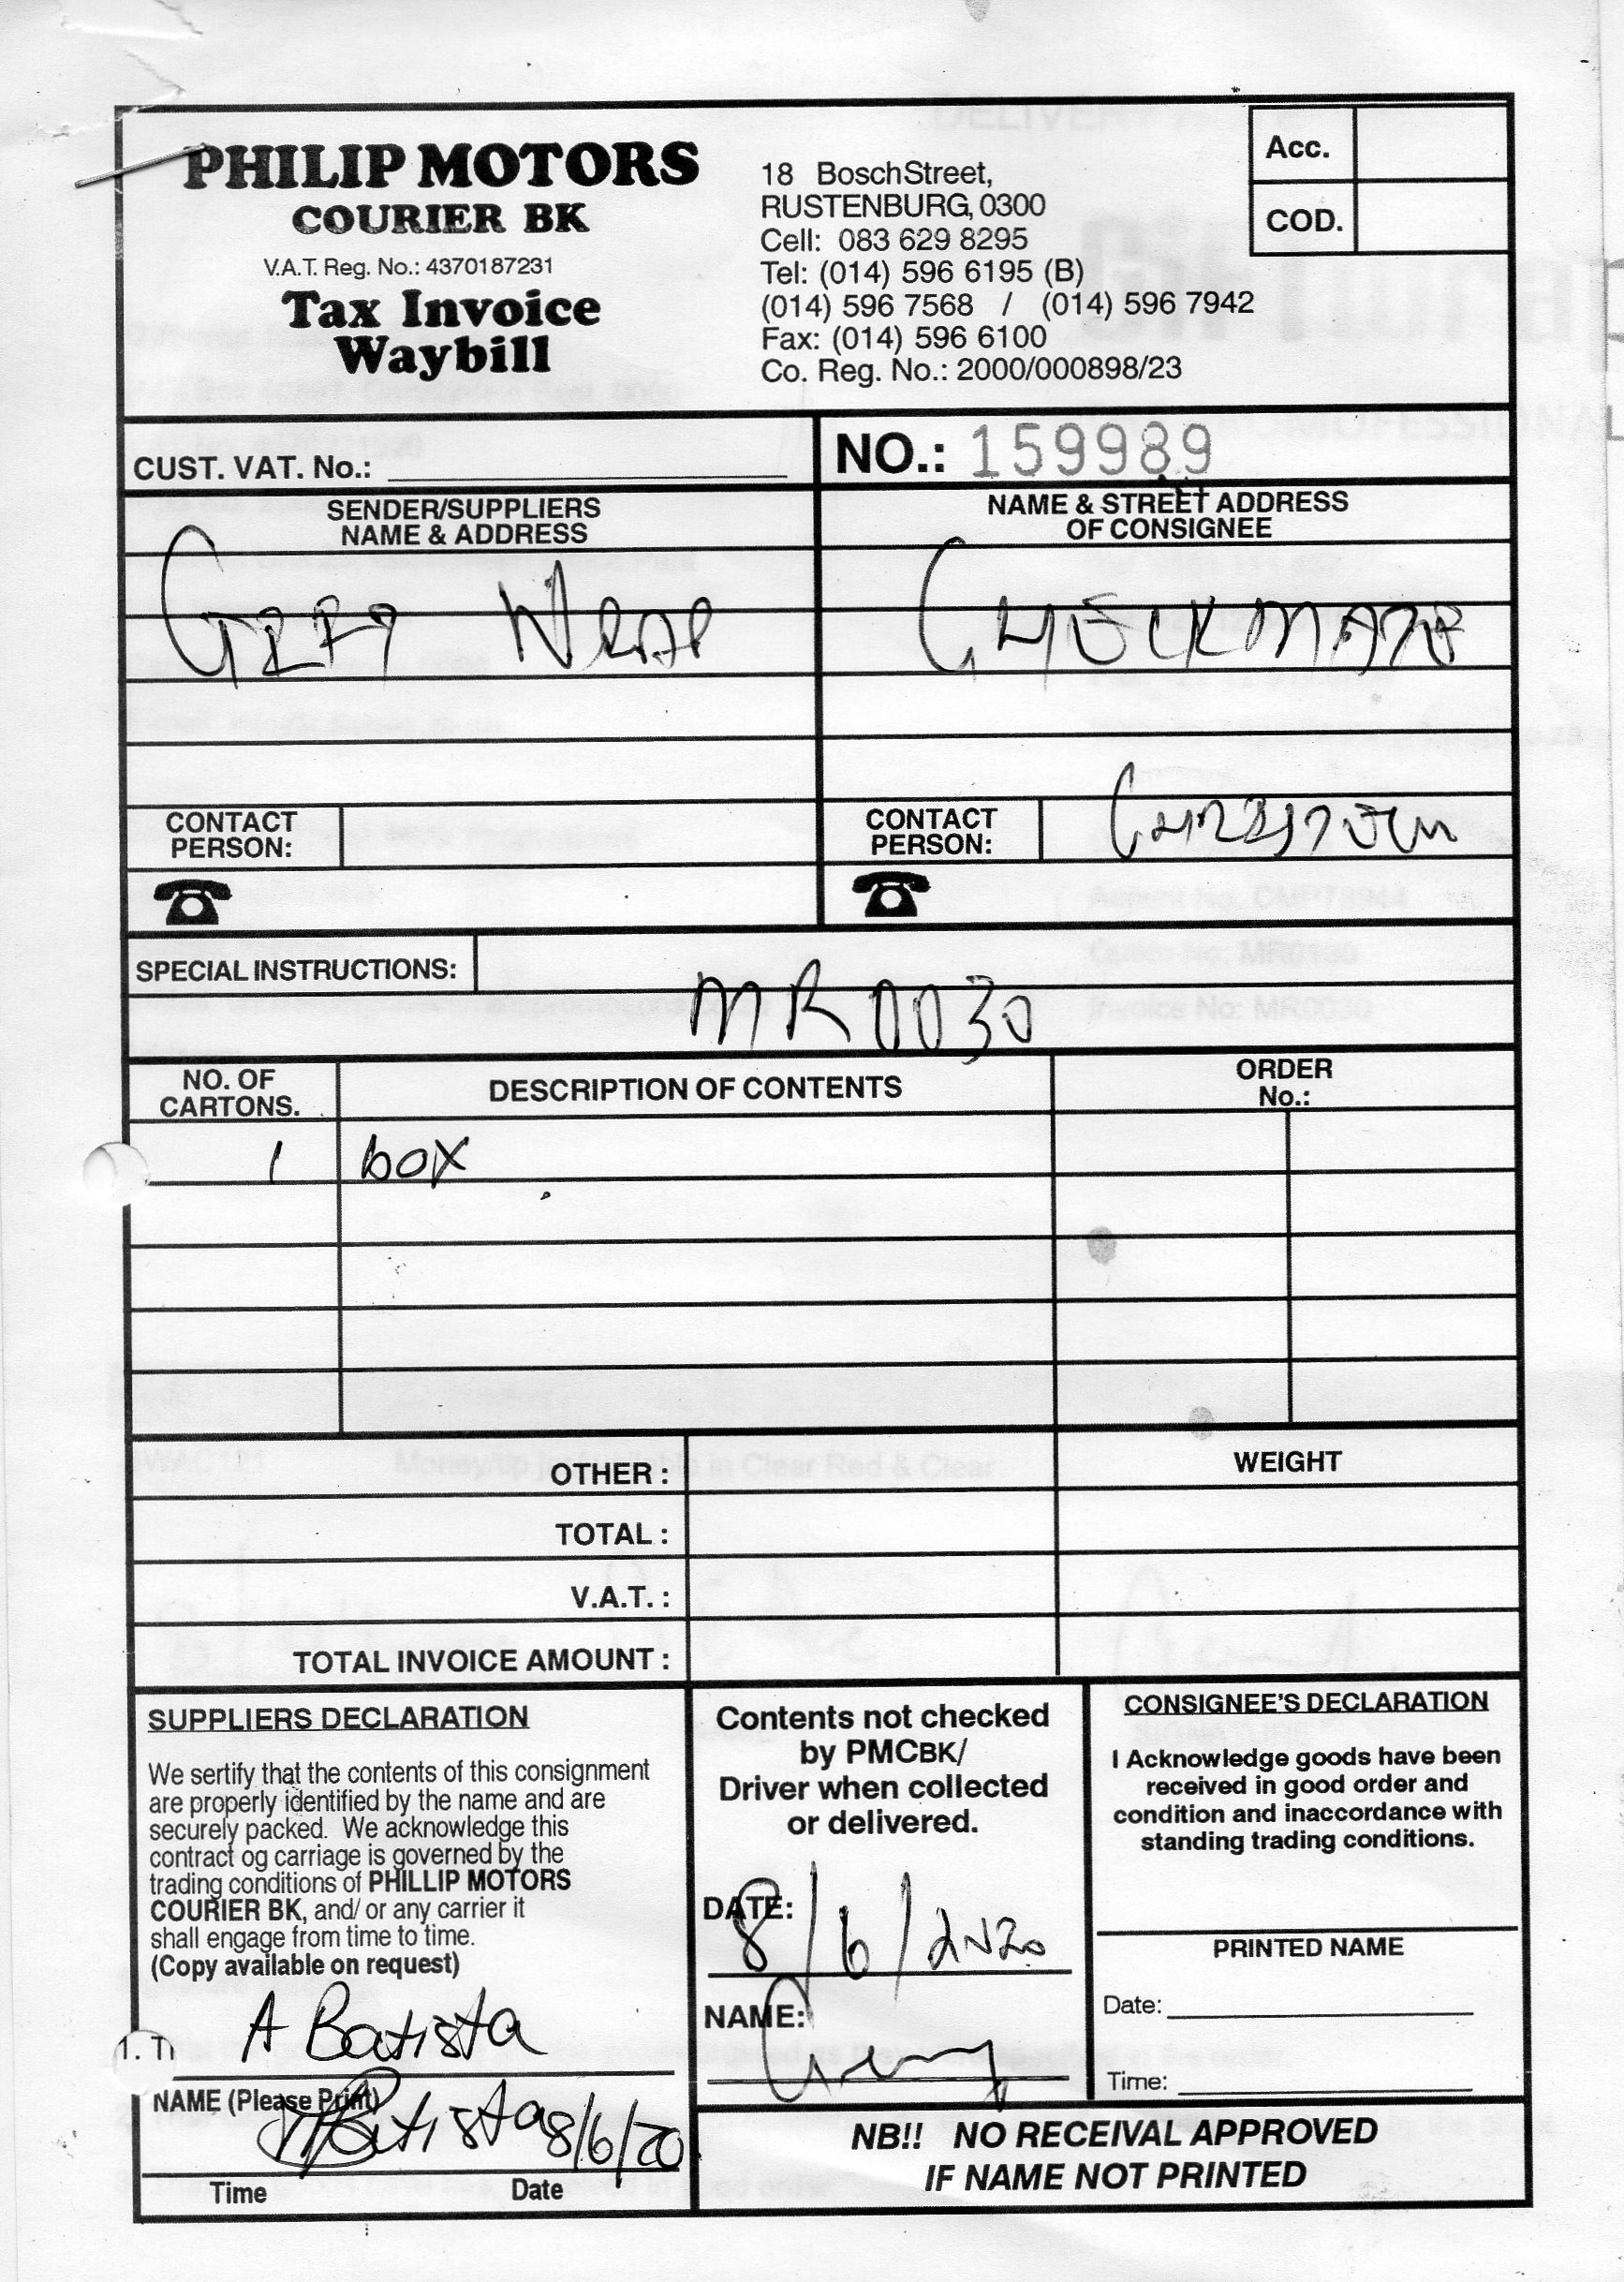 PHILIP MOTORS
COURIER BK
V.A.T. Reg. No.: 4370187231
Tax Invoice
Waybill
18 Bosch Street,
RUSTENBURG, 0300
Cell: 083 629 8295
Tel: (014) 596 6195 (B)
(014) 596 7568 / (014) 596 7942
Fax: (014) 596 6100
Co. Reg. No.: 2000/000898/23
Acc.
COD.
CUST. VAT. No.:
NO.: 159989
SENDER/SUPPLIERS
NAME & ADDRESS
GIFT WRAP
NAME & STREET ADDRESS
OF CONSIGNEE
CHECKMATE
CONTACT
PERSON:
CONTACT
PERSON:
SPECIAL INSTRUCTIONS:
MR0030
NO. OF
CARTONS.
DESCRIPTION OF CONTENTS
ORDER
No.:
1 box
OTHER :
WEIGHT
TOTAL :
V.A.T. :
TOTAL INVOICE AMOUNT :
SUPPLIERS DECLARATION
We sertify that the contents of this consignment
are properly identified by the name and are
securely packed. We acknowledge this
contract og carriage is governed by the
trading conditions of PHILLIP MOTORS
COURIER BK, and/ or any carrier it
shall engage from time to time.
(Copy available on request)
A Batista
NAME (Please Print)
Batista 8/6/20
Time Date
Contents not checked
by PMCBK/
Driver when collected
or delivered.
DATE: 8/6/2020
NAME:
CONSIGNEE'S DECLARATION
I Acknowledge goods have been
received in good order and
condition and inaccordance with
standing trading conditions.
PRINTED NAME
Date:
Time:
NB!! NO RECEIVAL APPROVED
IF NAME NOT PRINTED